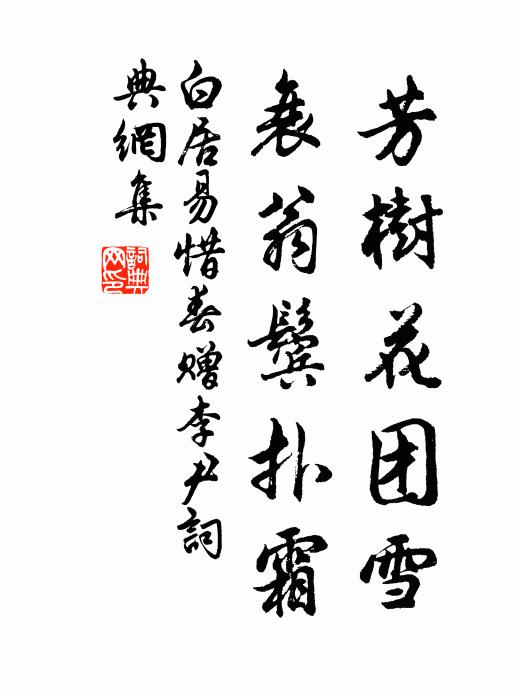 芳樹花团雪
衰翁鬓扑霜
白居易惜春赠李尹詞
典網集
詞典网印